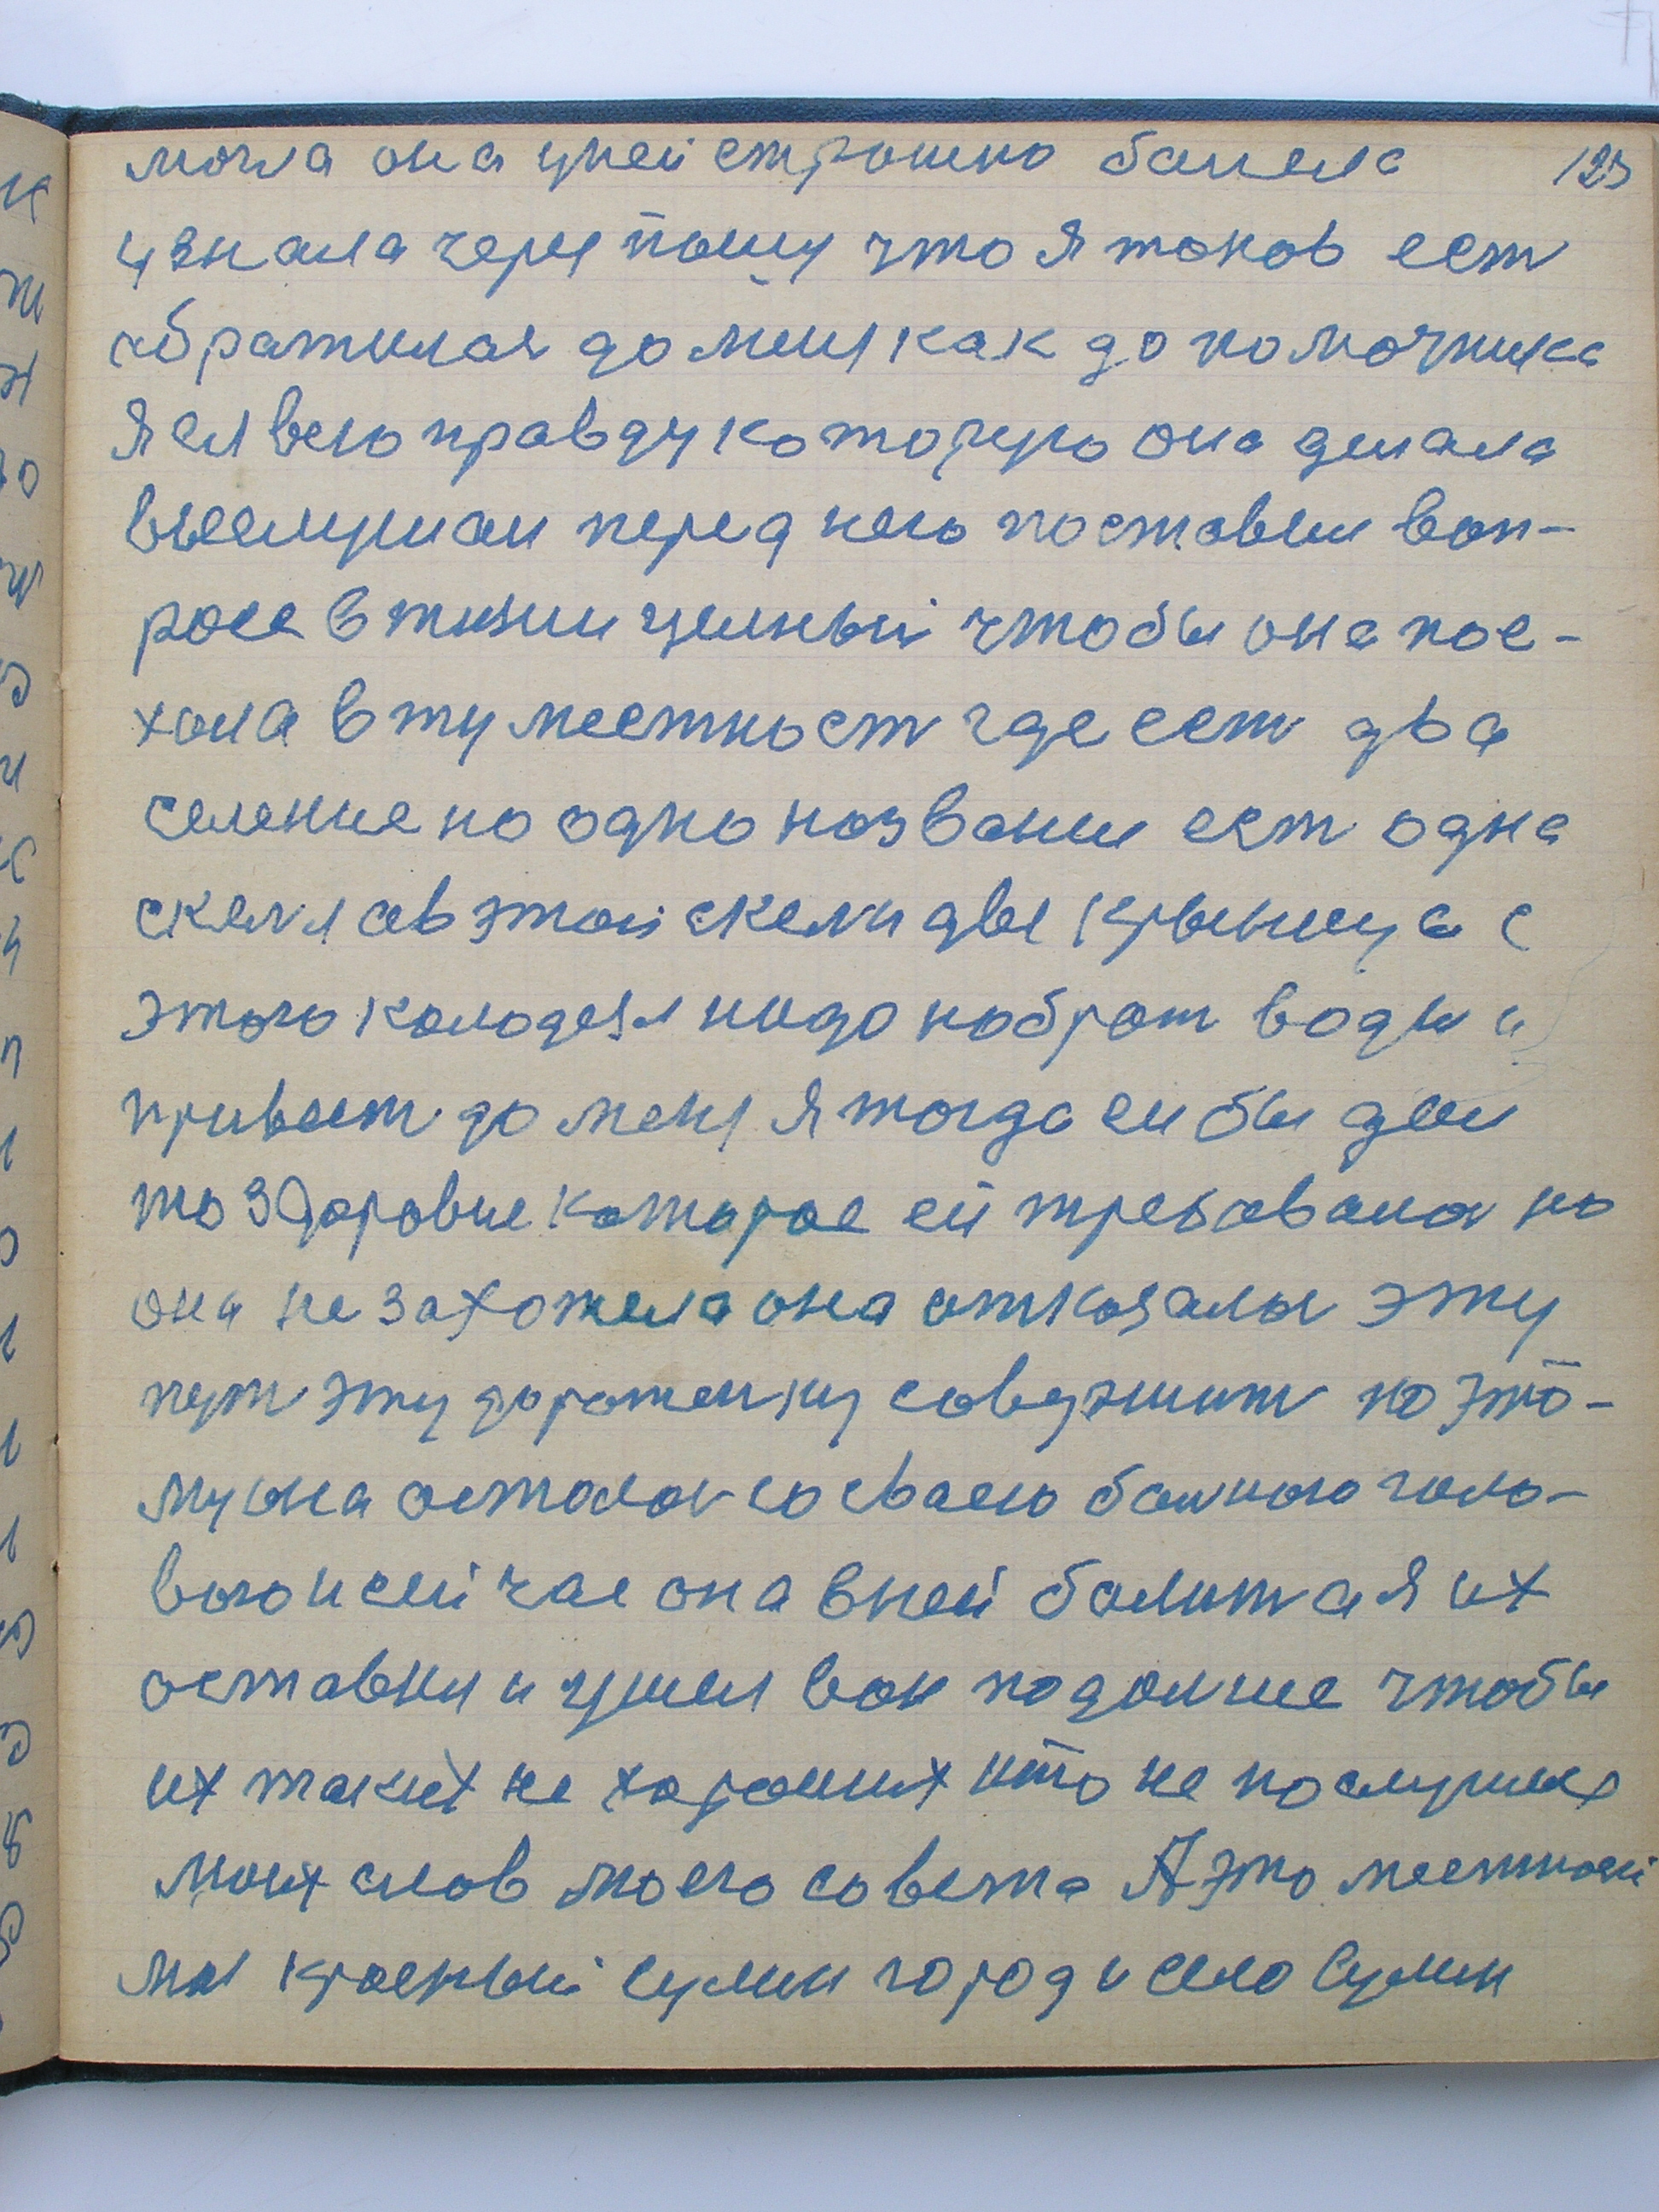 могла она уней страшно балела 123
узнала через пошу что я таков ест
обратилас до меня как до помочника
Я ея всю правду которую она делала
выслушал перед нею поставел воп-
росе в жизни ценный чтобы она пое-
хала в ту местност где ест два
селение но одно названи ест одна
скеля ов этой скели две крыница с
этого колодезя надо набрат воды и
привест до меня я тогда ей бы дал
то здоровие которое ей требовалос но
она не захотела она отказалас эту
пут эту дороженку совершит по это-
му она осталас со своею болною голо-
вою и сейчас она в ней болит а я их
оставил и ушел вон подалше чтобы
их таких не хороших кто не послушал
моих слов моего совета А это местност
мы красный сулин город и село Сулин